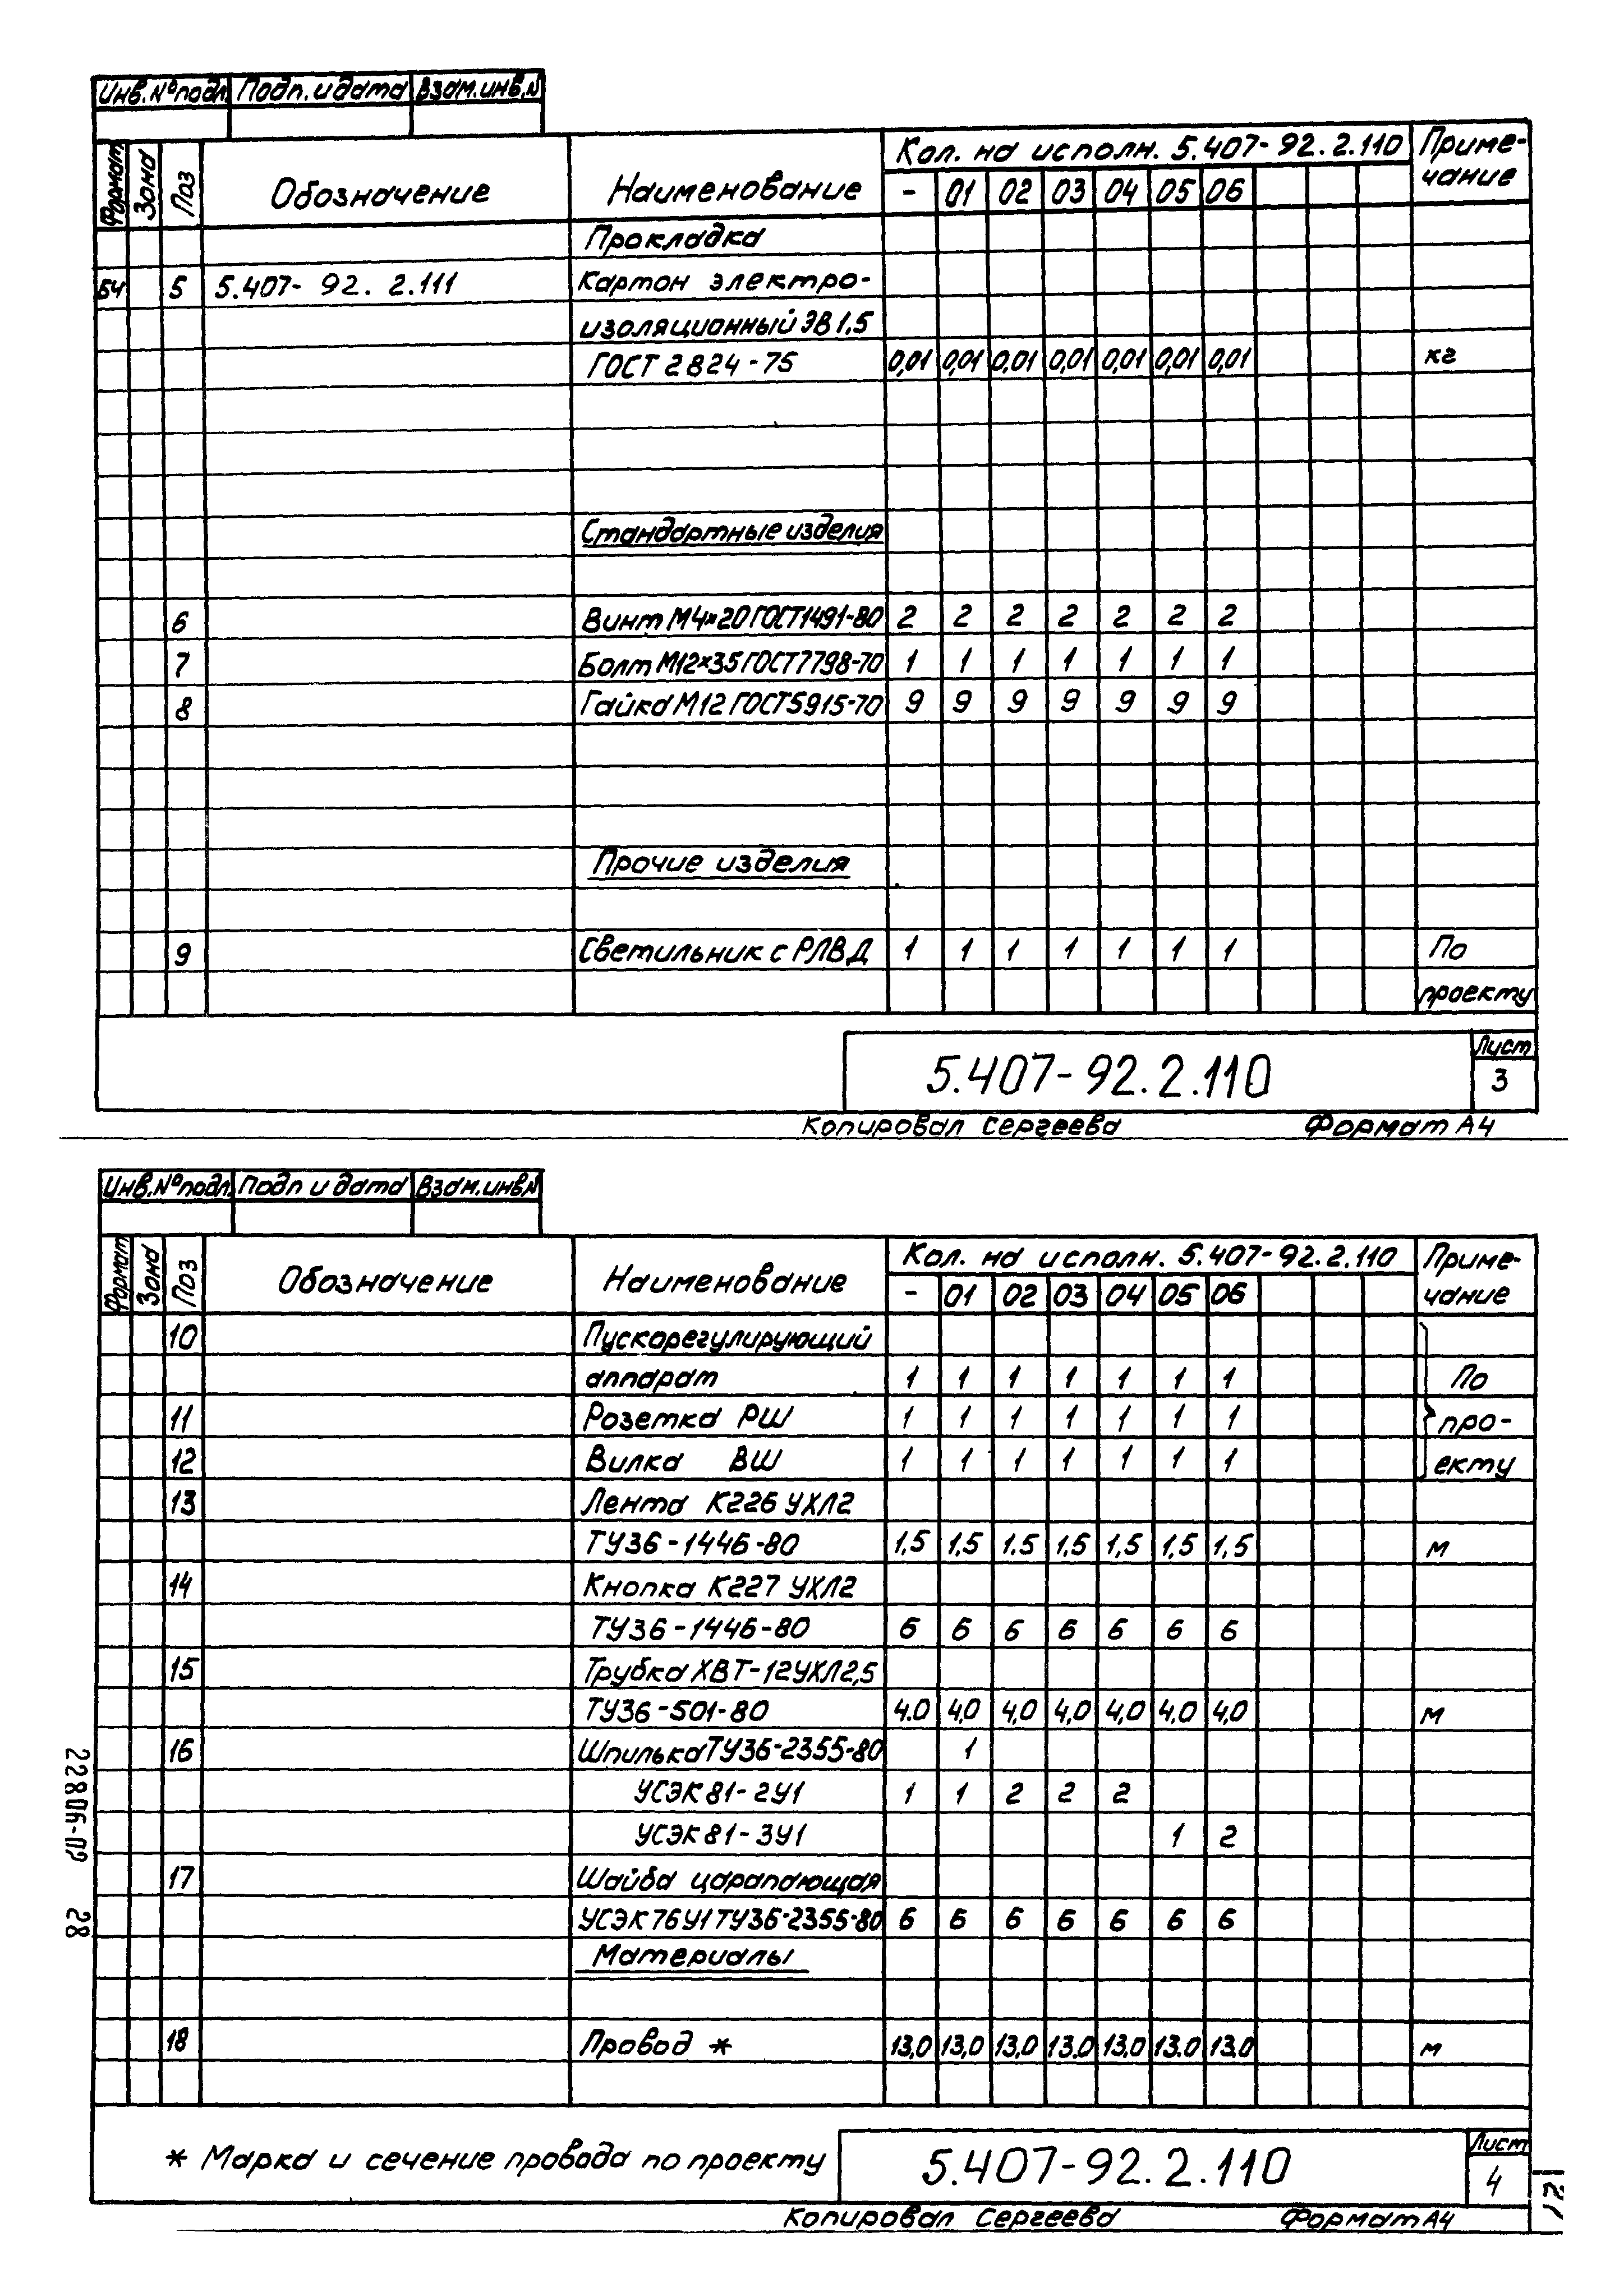 Инв.№подл. Подп. и дата Взам.инв.N
Формат Зона Поз Обозначение Наименование Кол. на исполн. 5.407-92.2.110 Приме-
- 01 02 03 04 05 06 чание
Прокладка
БЧ 5 5.407-92.2.111 Картон электро-
изоляционный ЭВ 1,5
ГОСТ 2824-75 0,01 0,01 0,01 0,01 0,01 0,01 0,01 кг
Стандартные изделия
6 Винт М4×20 ГОСТ1491-80 2 2 2 2 2 2 2
7 Болт М12×35 ГОСТ7798-70 1 1 1 1 1 1 1
8 Гайка М12 ГОСТ5915-70 9 9 9 9 9 9 9
Прочие изделия
9 Светильник с РЛВД 1 1 1 1 1 1 1 По
проекту
5.407-92.2.110 Лист
3
Копировал Сергеева Формат А4
Инв.№подл. Подп и дата Взам.инв.N
Формат Зона Поз Обозначение Наименование Кол. на исполн. 5.407-92.2.110 Приме-
- 01 02 03 04 05 06 чание
10 Пускорегулирующий
аппарат 1 1 1 1 1 1 1 По
11 Розетка РШ 1 1 1 1 1 1 1 про-
12 Вилка ВШ 1 1 1 1 1 1 1 екту
13 Лента К226 УХЛ2
ТУ36-1446-80 1,5 1,5 1.5 1,5 1,5 1,5 1,5 м
14 Кнопка К227 УХЛ2
ТУ36-1446-80 6 6 6 6 6 6 6
15 Трубка ХВТ-12УХЛ2,5
ТУ36-501-80 4.0 4,0 4,0 4,0 4,0 4,0 4,0 м
16 Шпилька ТУ36-2355-80 1
УСЭК 81-2У1 1 1 2 2 2
УСЭК 81-3У1 1 2
17 Шайба царапающая
УСЭК 76 У1 ТУ36-2355-80 6 6 6 6 6 6 6
Материалы
18 Провод * 13,0 13,0 13,0 13.0 13,0 13.0 13,0 м
* Марка и сечение провода по проекту
5.407-92.2.110 Лист
4
Копировал Сергеева Формат А4
22806-02 28